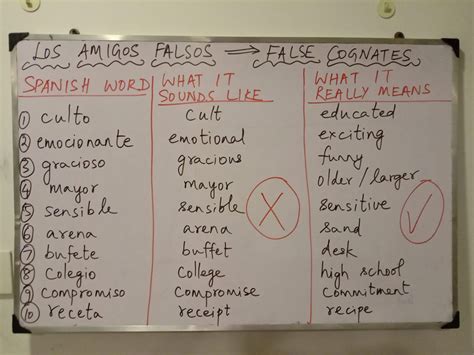 LOS AMIGOS FALSOS ⇒ FALSE COGNATES
SPANISH WORD WHAT IT SOUNDS LIKE WHAT IT REALLY MEANS
① culto Cult educated
② emocionante emotional exciting
③ gracioso gracious funny
④ mayor mayor older/larger
⑤ sensible sensible sensitive
⑥ arena arena sand
⑦ bufete buffet desk
⑧ Colegio College high school
⑨ Compromiso Compromise Commitment
⑩ receta receipt recipe